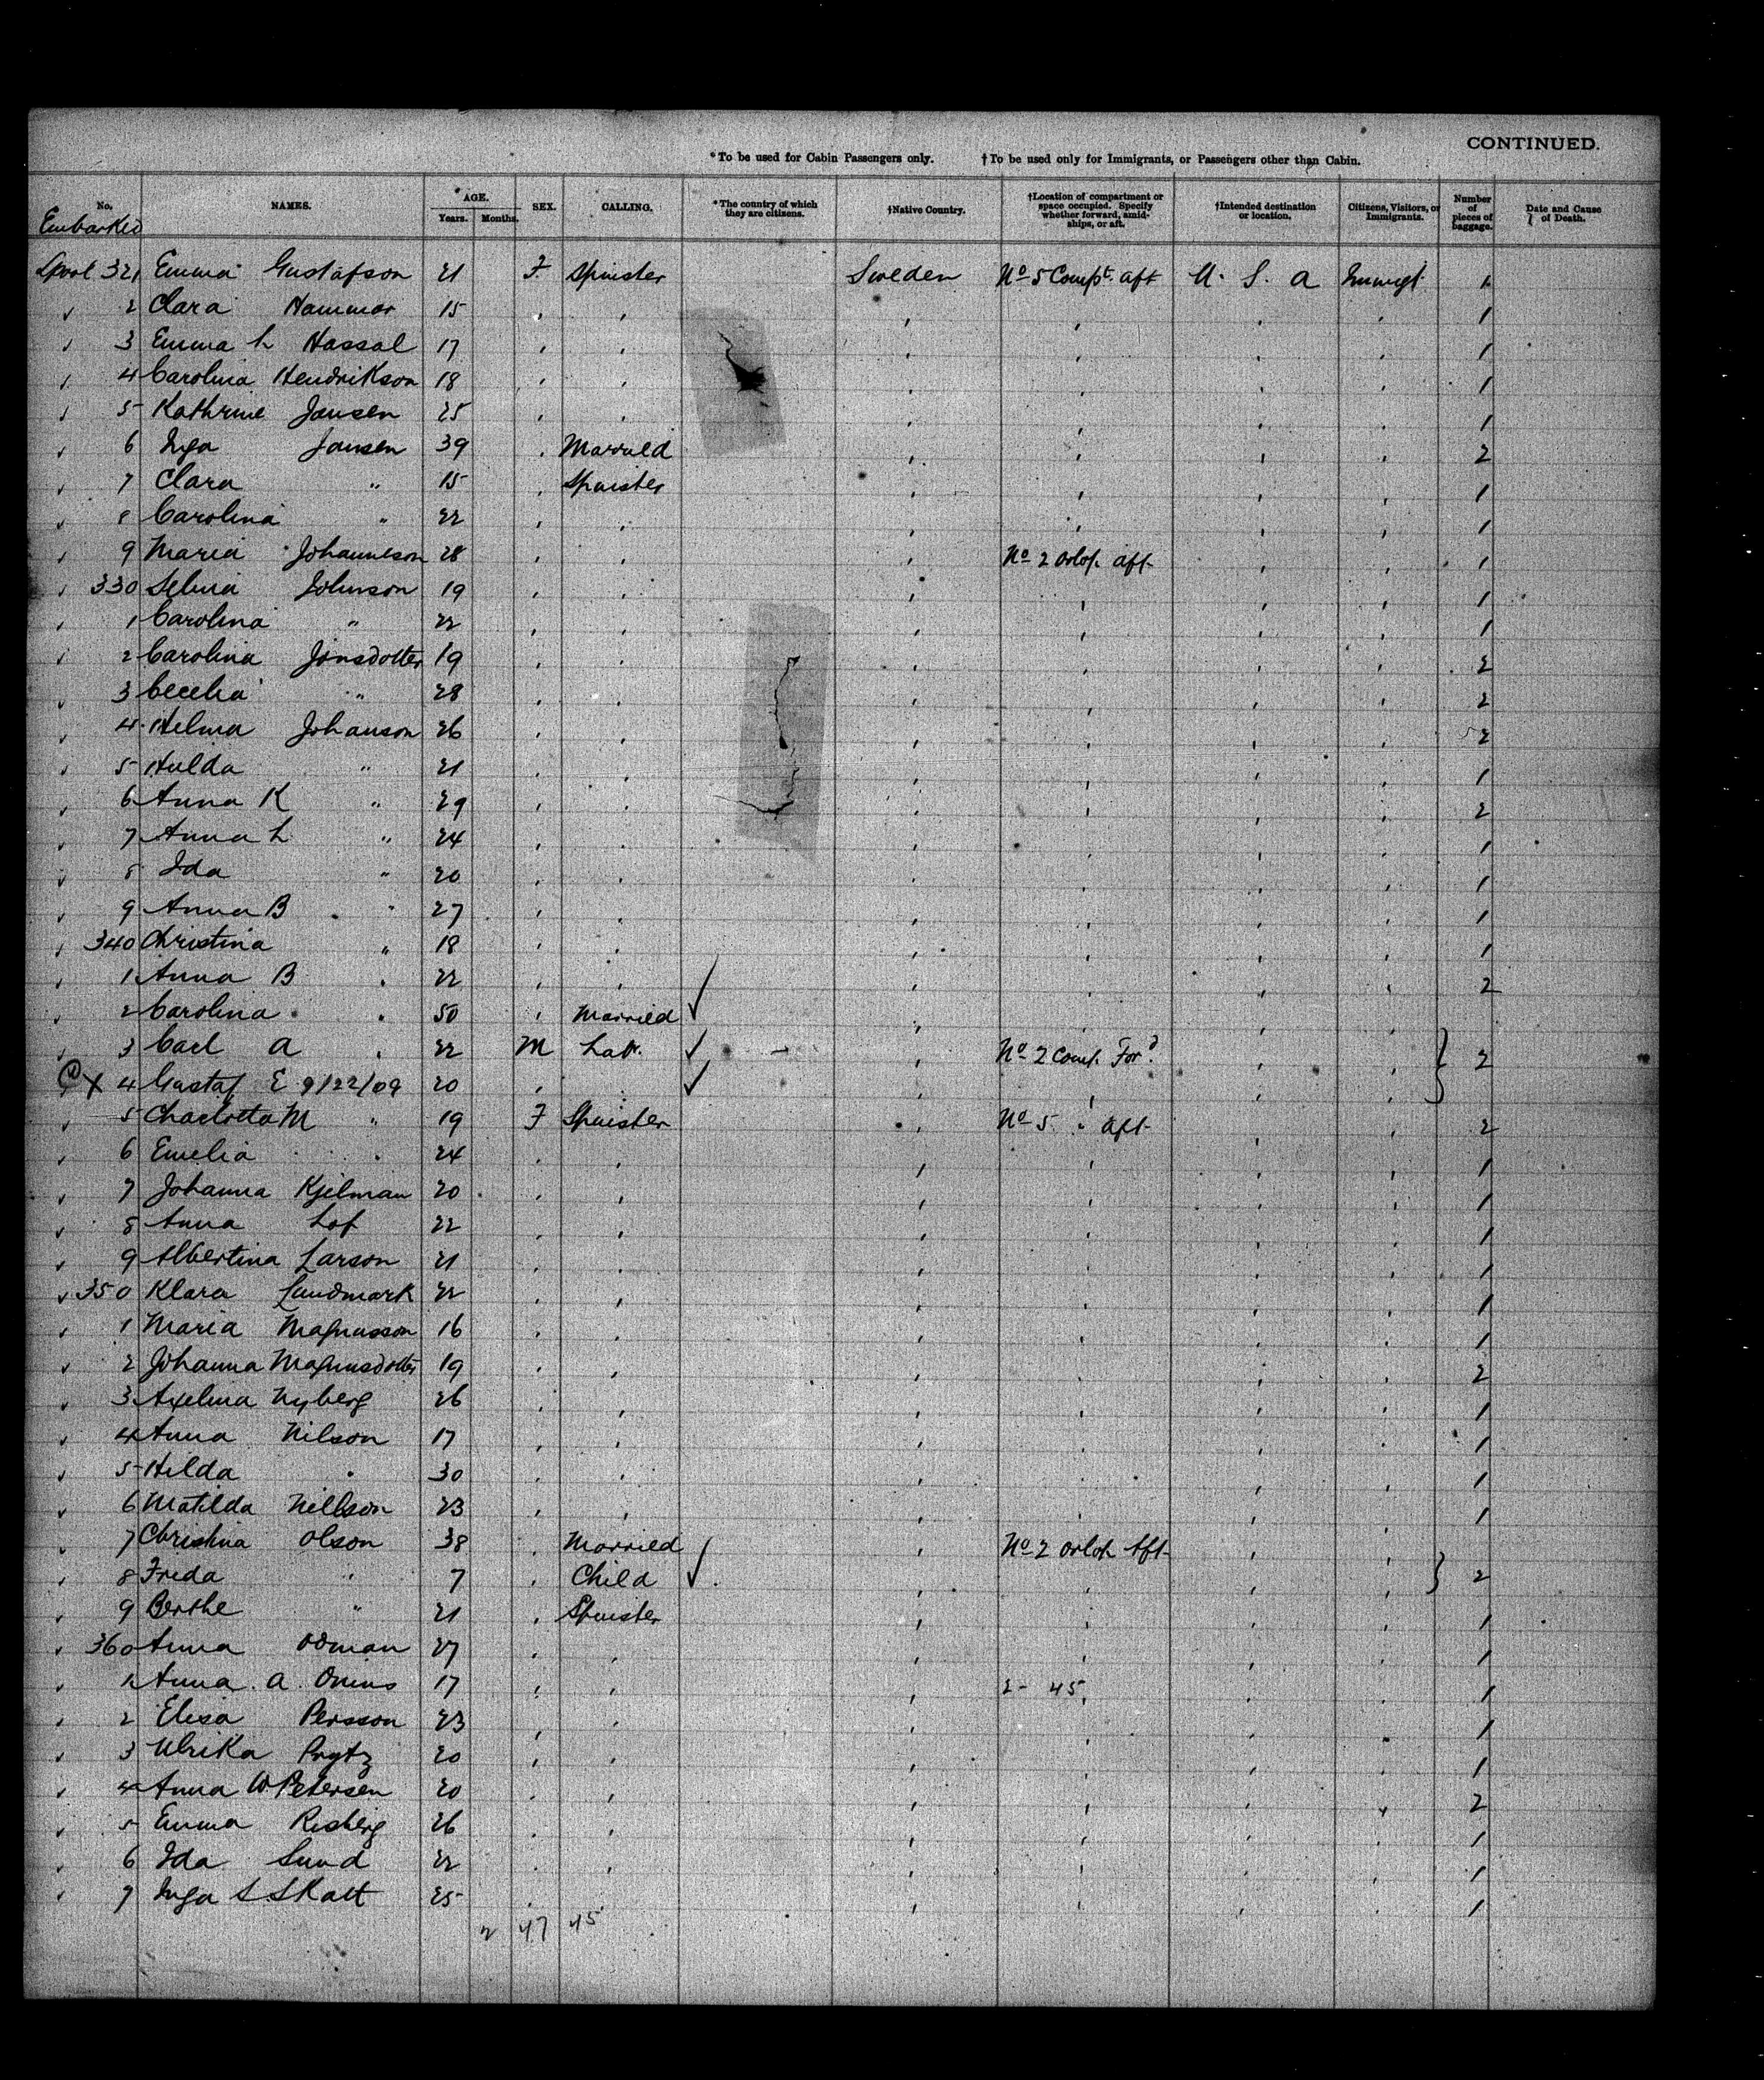 CONTINUED.
*To be used for Cabin Passengers only. †To be used only for Immigrants, or Passengers other than Cabin.
No. NAMES. AGE. Years. Months. SEX. CALLING. *The country of which they are citizens. †Native Country. †Location of compartment or space occupied. Specify whether forward, amidships, or aft. †Intended destination or location. Citizens, Visitors, or Immigrants. Number of pieces of baggage. Date and Cause of Death.
Embarked
Lpool 321 Emma Gustafson 21 F Spinster Sweden No 5 Compt. aft U. S. A Immigt 1
2 Clara Hammar 15 1
3 Emma L Hassal 17 1
4 Carolina Hendrikson 18 1
5 Kathrine Jansen 25 1
6 Inga Jansen 39 Married 2
7 Clara " 15 Spinster 1
8 Carolina " 22 1
9 Maria Johanneson 28 No 2 Orlop. aft 1
330 Selma Johnson 19 1
1 Carolina " 22 1
2 Carolina Jonsdotter 19 2
3 Cecelia " 28 2
4 Helma Johanson 26 2
5 Hulda " 21 1
6 Anna K " 29 2
7 Anna L " 24 1
8 Ida " 20 1
9 Anna B " 27 1
340 Christina " 18 1
1 Anna B " 22 2
2 Carolina " 50 Married ✓
3 Carl A " 22 M Labr. ✓ No 2 Comp. Ford } 2
X 4 Gustaf E 9/22/09 20 ✓
5 Charlotta M " 19 F Spinster No 5 " aft 2
6 Emelia " 24 1
7 Johanna Kjelman 20 1
8 Anna Lof 22 1
9 Albertina Larson 21 1
350 Klara Landmark 22 1
1 Maria Magnusson 16 1
2 Johanna Magnusdotter 19 2
3 Axelina Nyberg 26 1
4 Anna Nilson 17 1
5 Hilda " 30 1
6 Matilda Nillson 23 1
7 Christina Olson 38 Married No 2 Orlop Aft
8 Freda " 7 Child ✓ } 2
9 Berthe " 21 Spinster 1
360 Anna Odman 27 1
1 Anna A. 17 2 - 45 1
2 Elisa Persson 23 1
3 Ulrika Prytz 20 1
4 Anna W Petersen 20 2
5 Emma Risberg 26 1
6 Ida Sund 22 1
7 Inga S Skatt 25 1
2 47 45